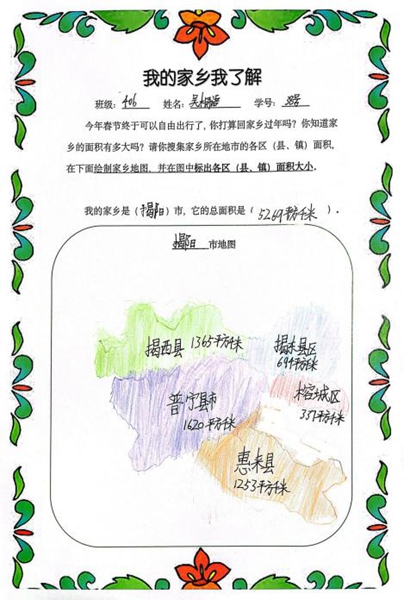 我的家乡我了解
班级：406 姓名：吴 学号：38号
今年春节终于可以自由出行了，你打算回家乡过年吗？你知道家
乡的面积有多大吗？请你搜集家乡所在地市的各区（县、镇）面积，
在下面绘制家乡地图，并在图中标出各区（县、镇）面积大小。
我的家乡是（揭阳）市，它的总面积是（5269平方千米）。
揭阳 市地图
揭西县 1365平方千米
揭东县区
694平方千米
榕城区
337平方千米
普宁县市
1620平方千米
惠来县
1253平方千米